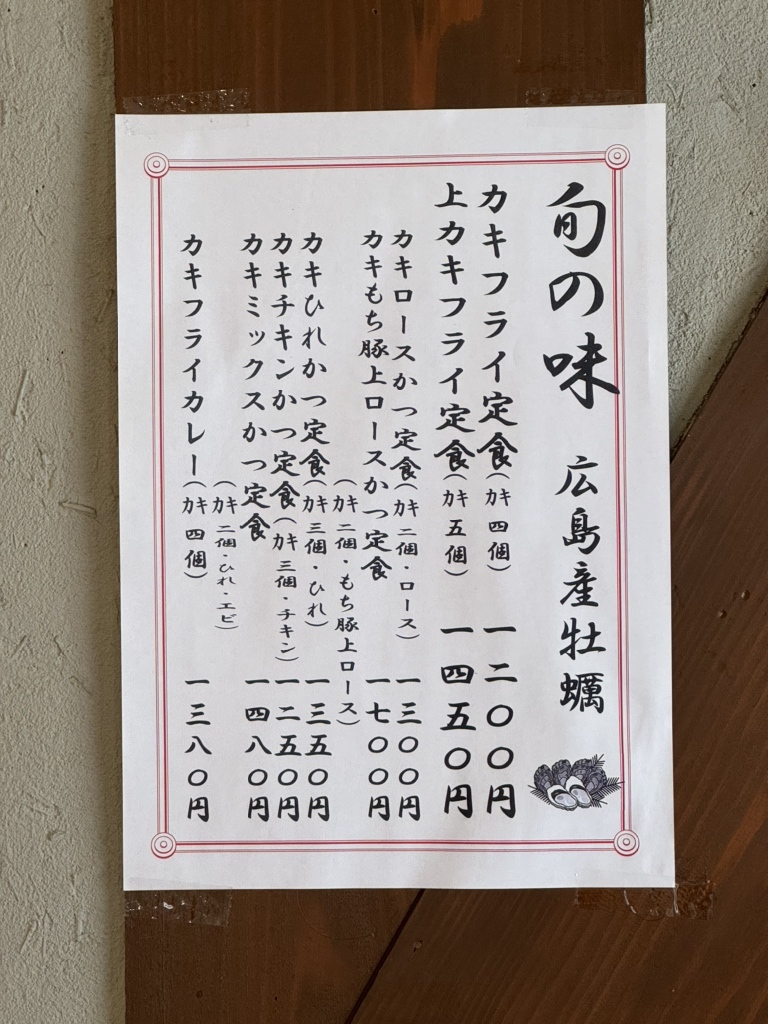 旬の味 広島産牡蠣
カキフライ定食(カキ 四個) 一二〇〇円
上カキフライ定食(カキ 五個) 一四五〇円
カキロースかつ定食(カキ 二個・ロース) 一三〇〇円
カキもち豚上ロースかつ定食 一七〇〇円
(カキ 二個・もち豚上ロース)
カキひれかつ定食(カキ 三個・ひれ) 一三五〇円
カキチキンかつ定食(カキ 三個・チキン) 一二五〇円
カキミックスかつ定食 一四八〇円
(カキ 二個・ひれ・エビ)
カキフライカレー(カキ 四個) 一三八〇円